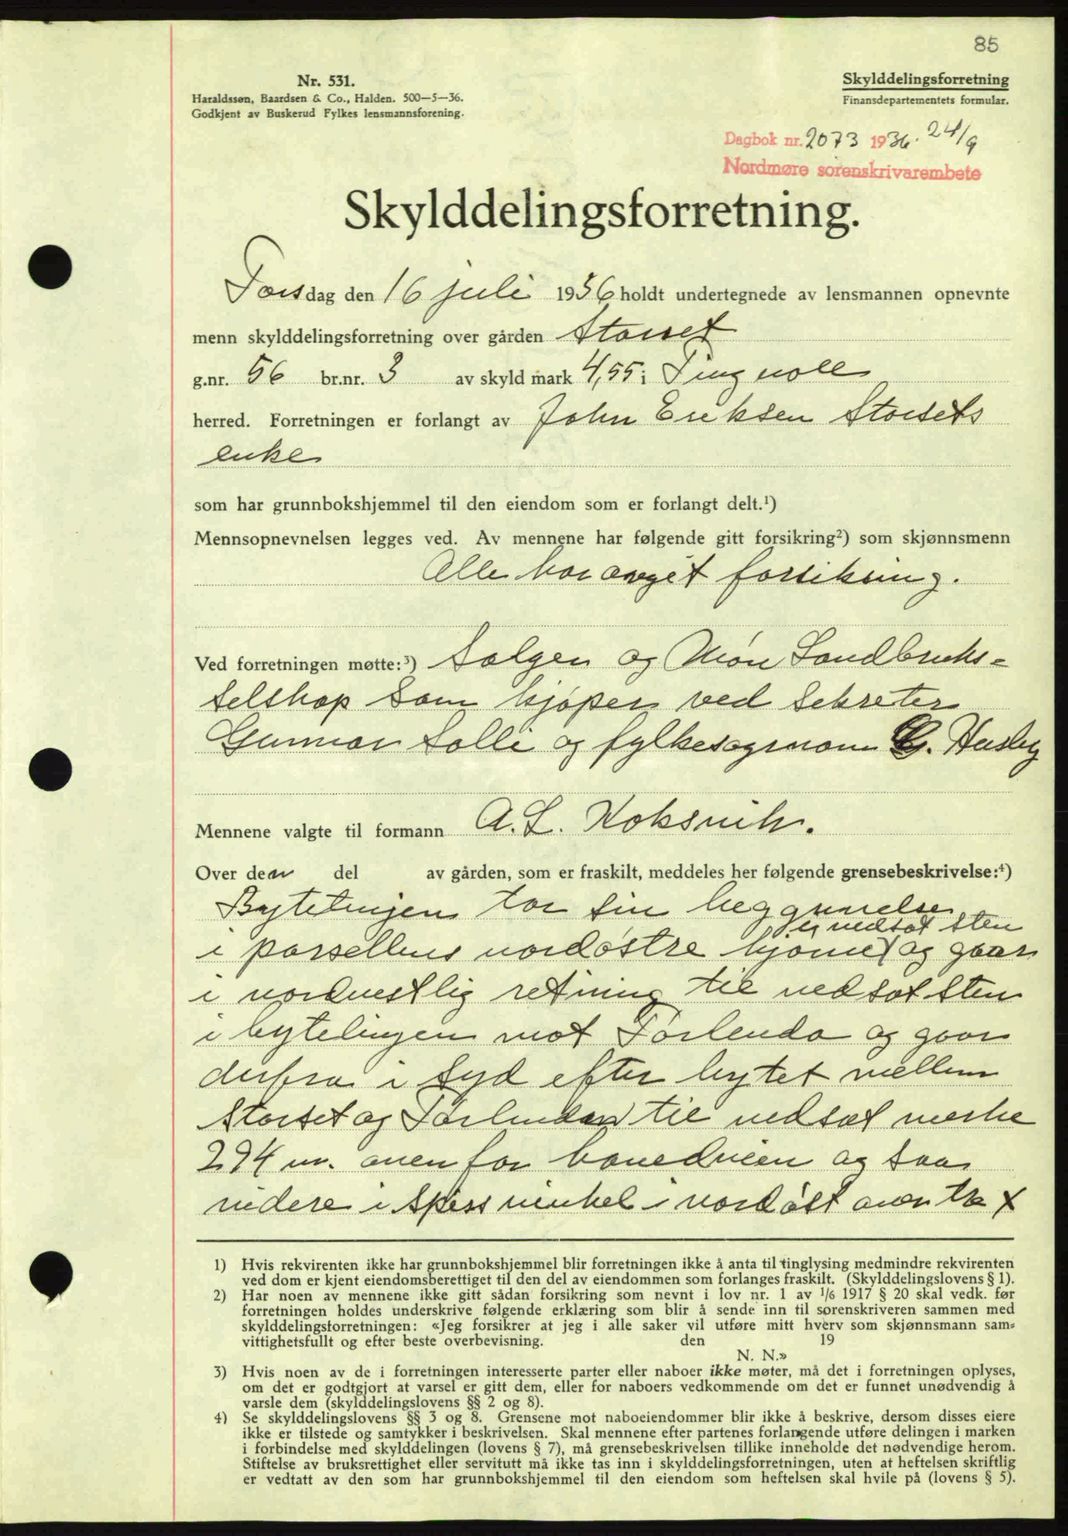 85
Nr. 531.
Haraldssøn, Baardsen & Co., Halden. 500—5—36.
Godkjent av Buskerud Fylkes lensmannsforening.
Skylddelingsforretning
Finansdepartementets formular.
Dagbok nr. 2073 1936. 24/9
Nordmøre sorenskrivarembete
Skylddelingsforretning.
Torsdag den 16 juli 1936 holdt undertegnede av lensmannen opnevnte
menn skylddelingsforretning over gården Storset
g.nr. 56 br.nr. 3 av skyld mark 4,55 i Tingvoll
herred. Forretningen er forlangt av John Eriksen Storsets
enke
som har grunnbokshjemmel til den eiendom som er forlangt delt.¹)
Mennsopnevnelsen legges ved. Av mennene har følgende gitt forsikring²) som skjønnsmenn
Alle har avgit forsikring.
Ved forretningen møtte:³) Sælgen og Møre Landbruks-
selskap som kjøper ved sekretær
Gunnar Solli og fylkesagronom G. Husby
Mennene valgte til formann A. L. Koksvik.
Over den del av gården, som er fraskilt, meddeles her følgende grensebeskrivelse:⁴)
Bytelinjen tar sin begynnelse
er nedsat sten
i parsellens nordøstre hjørne og gaar
i nordvestlig retning til nedsat sten
i bytelinjen mot Torlenda og gaar
derfra i syd efter bytet mellem
Storset og til nedsat merke
294 m. ovenfor og saa
videre i spiss vinkel i nordøst over til x
1) Hvis rekvirenten ikke har grunnbokshjemmel blir forretningen ikke å anta til tinglysing medmindre rekvirenten
ved dom er kjent eiendomsberettiget til den del av eiendommen som forlanges fraskilt. (Skylddelingslovens § 1).
2) Har noen av mennene ikke gitt sådan forsikring som nevnt i lov nr. 1 av 1/6 1917 § 20 skal vedk. før
forretningen holdes underskrive følgende erklæring som blir å sende inn til sorenskriveren sammen med
skylddelingsforretningen: «Jeg forsikrer at jeg i alle saker vil utføre mitt hverv som skjønnsmann sam-
vittighetsfullt og efter beste overbevisning. den 19
N. N.»
3) Hvis noen av de i forretningen interesserte parter eller naboer ikke møter, må det i forretningen oplyses,
om det er godtgjort at varsel er gitt dem, eller for naboers vedkommende om det er funnet unødvendig å
varsle dem (skylddelingslovens §§ 2 og 8).
4) Se skylddelingslovens §§ 3 og 8. Grensene mot naboeiendommer blir ikke å beskrive, dersom disses eiere
ikke er tilstede og samtykker i beskrivelsen. Skal mennene efter partenes forlangende utføre delingen i marken
i forbindelse med skylddelingen (lovens § 7), må grensebeskrivelsen tillike inneholde det nødvendige herom.
Stiftelse av bruksrettighet eller servitutt må ikke tas inn i skylddelingsforretningen, uten at heftelsen skriftlig
er vedtatt av den som har grunnbokshjemmel til den eiendom som heftelsen skal hvile på (lovens § 5).